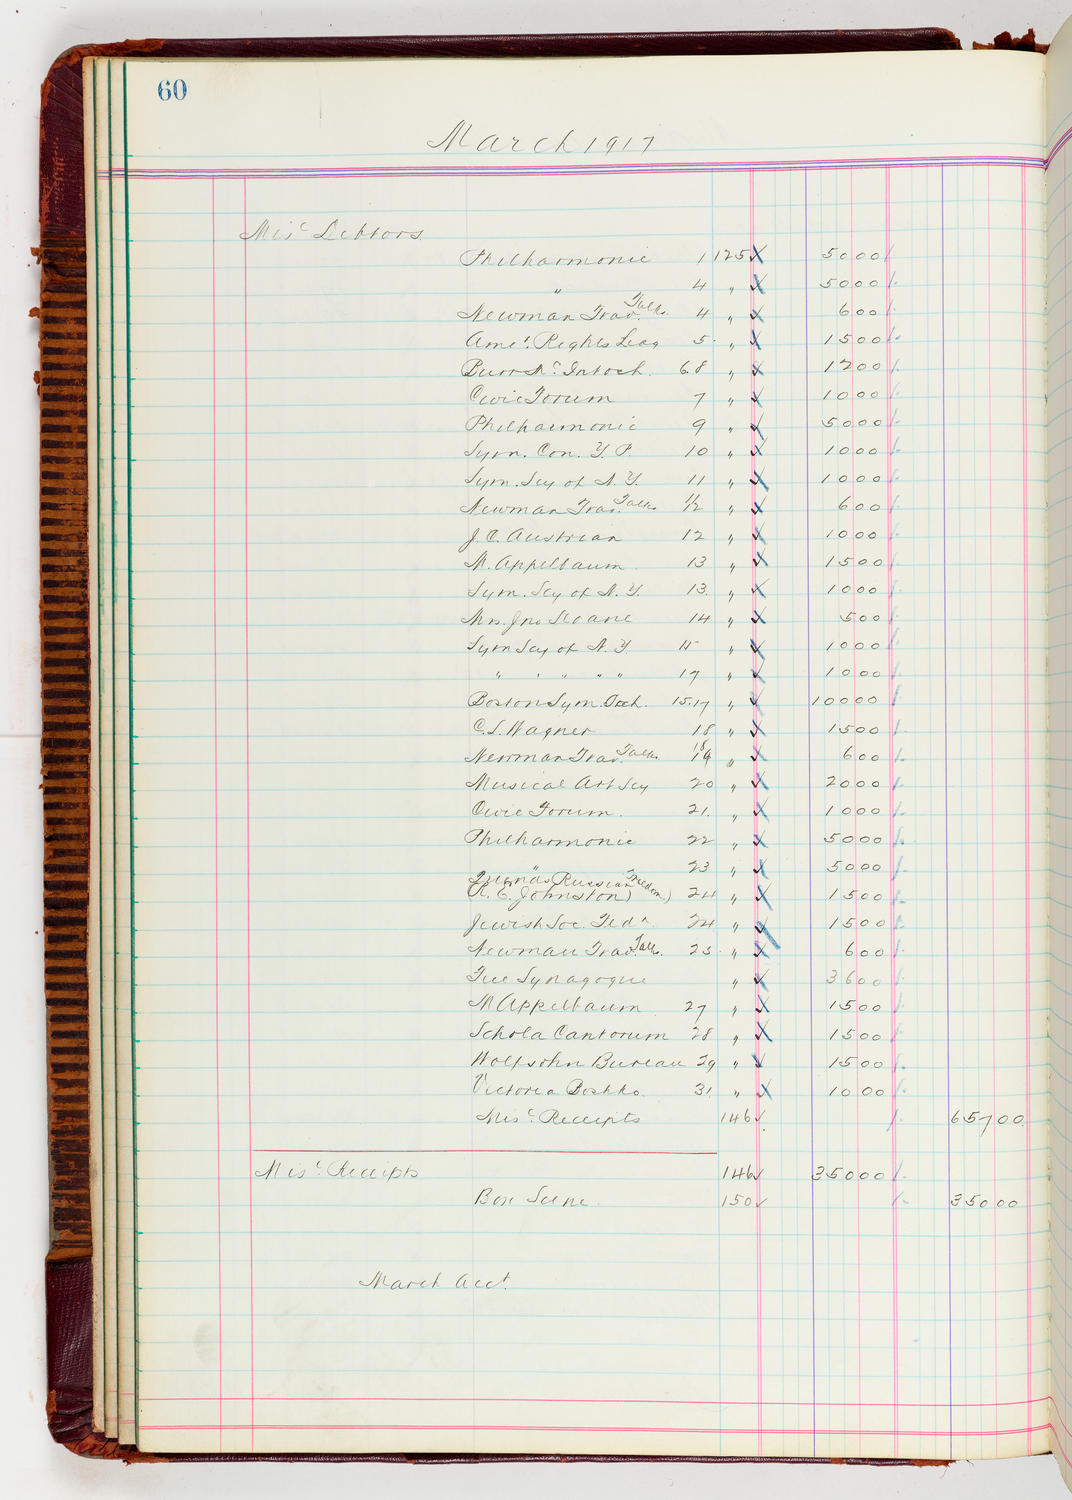 60
March 1917
Misc Debtors.
Philharmonic 1 125 5000
" 4 " 5000
Newman Trav. Talks. 4 " 600
Amer. Rights Leag 5 " 1500
Burr McIntosh. 6.8 " 1200
Civic Forum 7 " 1000
Philharmonic 9 " 5000
Sym. Con. Y. P. 10 " 1000
Sym. Scy of N. Y. 11 " 1000
Newman Trav. Talks 11/12 " 600
J. C. Austrian 12 " 1000
M. Appelbaum. 13 " 1500
Sym. Scy of N. Y. 13. " 1000
Mrs. Jno Sloane 14 " 500
Sym Scy of N. Y. 15 " 1000
" " " " " 17 " 1000
Boston Sym. Orch. 15.17 " 10000
C. L. Wagner 18 " 1500
Newman Trav. Talks. 18/19 " 600
Musical Art Scy 20 " 2000
Civic Forum. 21. " 1000
Philharmonic 22 " 5000
" 23 " 5000
Friends Russian Freedom
(R. E. Johnston) 24 " 1500
Jewish Soc. Fedn 24 " 1500
Newman Trav. Talks. 25 " 600
Free Synagogue " 3600
M Appelbaum 27 " 1500
Schola Cantorum 28 " 1500
Wolfsohn Bureau 29 " 1500
Victoria Boshko. 31. " 1000
Misc Receipts 146 65700
Misc Receipts 146 35000
Box Scene. 150 35000
March Acct.